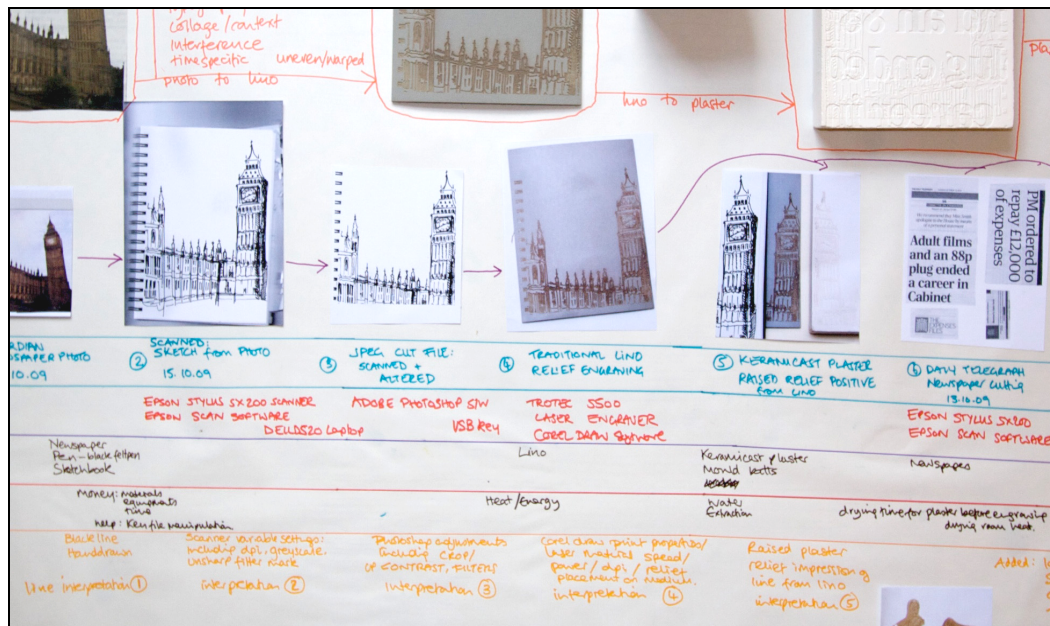 collage/context
interference
timespecific uneven/warped
photo to lino
lino to plaster
Adult films
and an 88p
plug ended
a career in
Cabinet
PM ordered to
repay £12,000
of expenses
THE
EXPENSES
FILES
PAPER PHOTO
10.09
② SCANNED:
SKETCH from PHOTO
15.10.09
③ JPEG CUT FILE:
SCANNED +
ALTERED
④ TRADITIONAL LINO
RELIEF ENGRAVING
⑤ KERAMICAST PLASTER
RAISED RELIEF POSITIVE
from LINO
⑥ DAILY TELEGRAPH
Newspaper cutting
13.10.09
EPSON STYLUS SX200 SCANNER
EPSON SCAN SOFTWARE
DELL D520 Laptop
ADOBE PHOTOSHOP S/W
USB key
TROTEC S500
LASER ENGRAVER
COREL DRAW Software
EPSON STYLUS SX200
EPSON SCAN SOFTWARE
Newspaper
Pen - black felt pen
Sketchbook
Lino
Keramicast plaster
Mould
Newspapers
Money: materials
equipments
Time
help: Ken file manipulation
Heat/Energy
Water
Extraction
drying time for plaster before engraving
drying room heat.
Black line
Handdrawn
line interpretation ①
Scanner variable settings:
Including dpi, greyscale,
unsharp filter mask
interpretation ②
Photoshop adjustments
Including CROP/
CONTRAST, FILTERS
Interpretation ③
Corel draw print properties/
laser material speed/
power/dpi/relief
placement on medium.
interpretation ④
Raised plaster
relief impression of
line from lino
interpretation ⑤
Added: